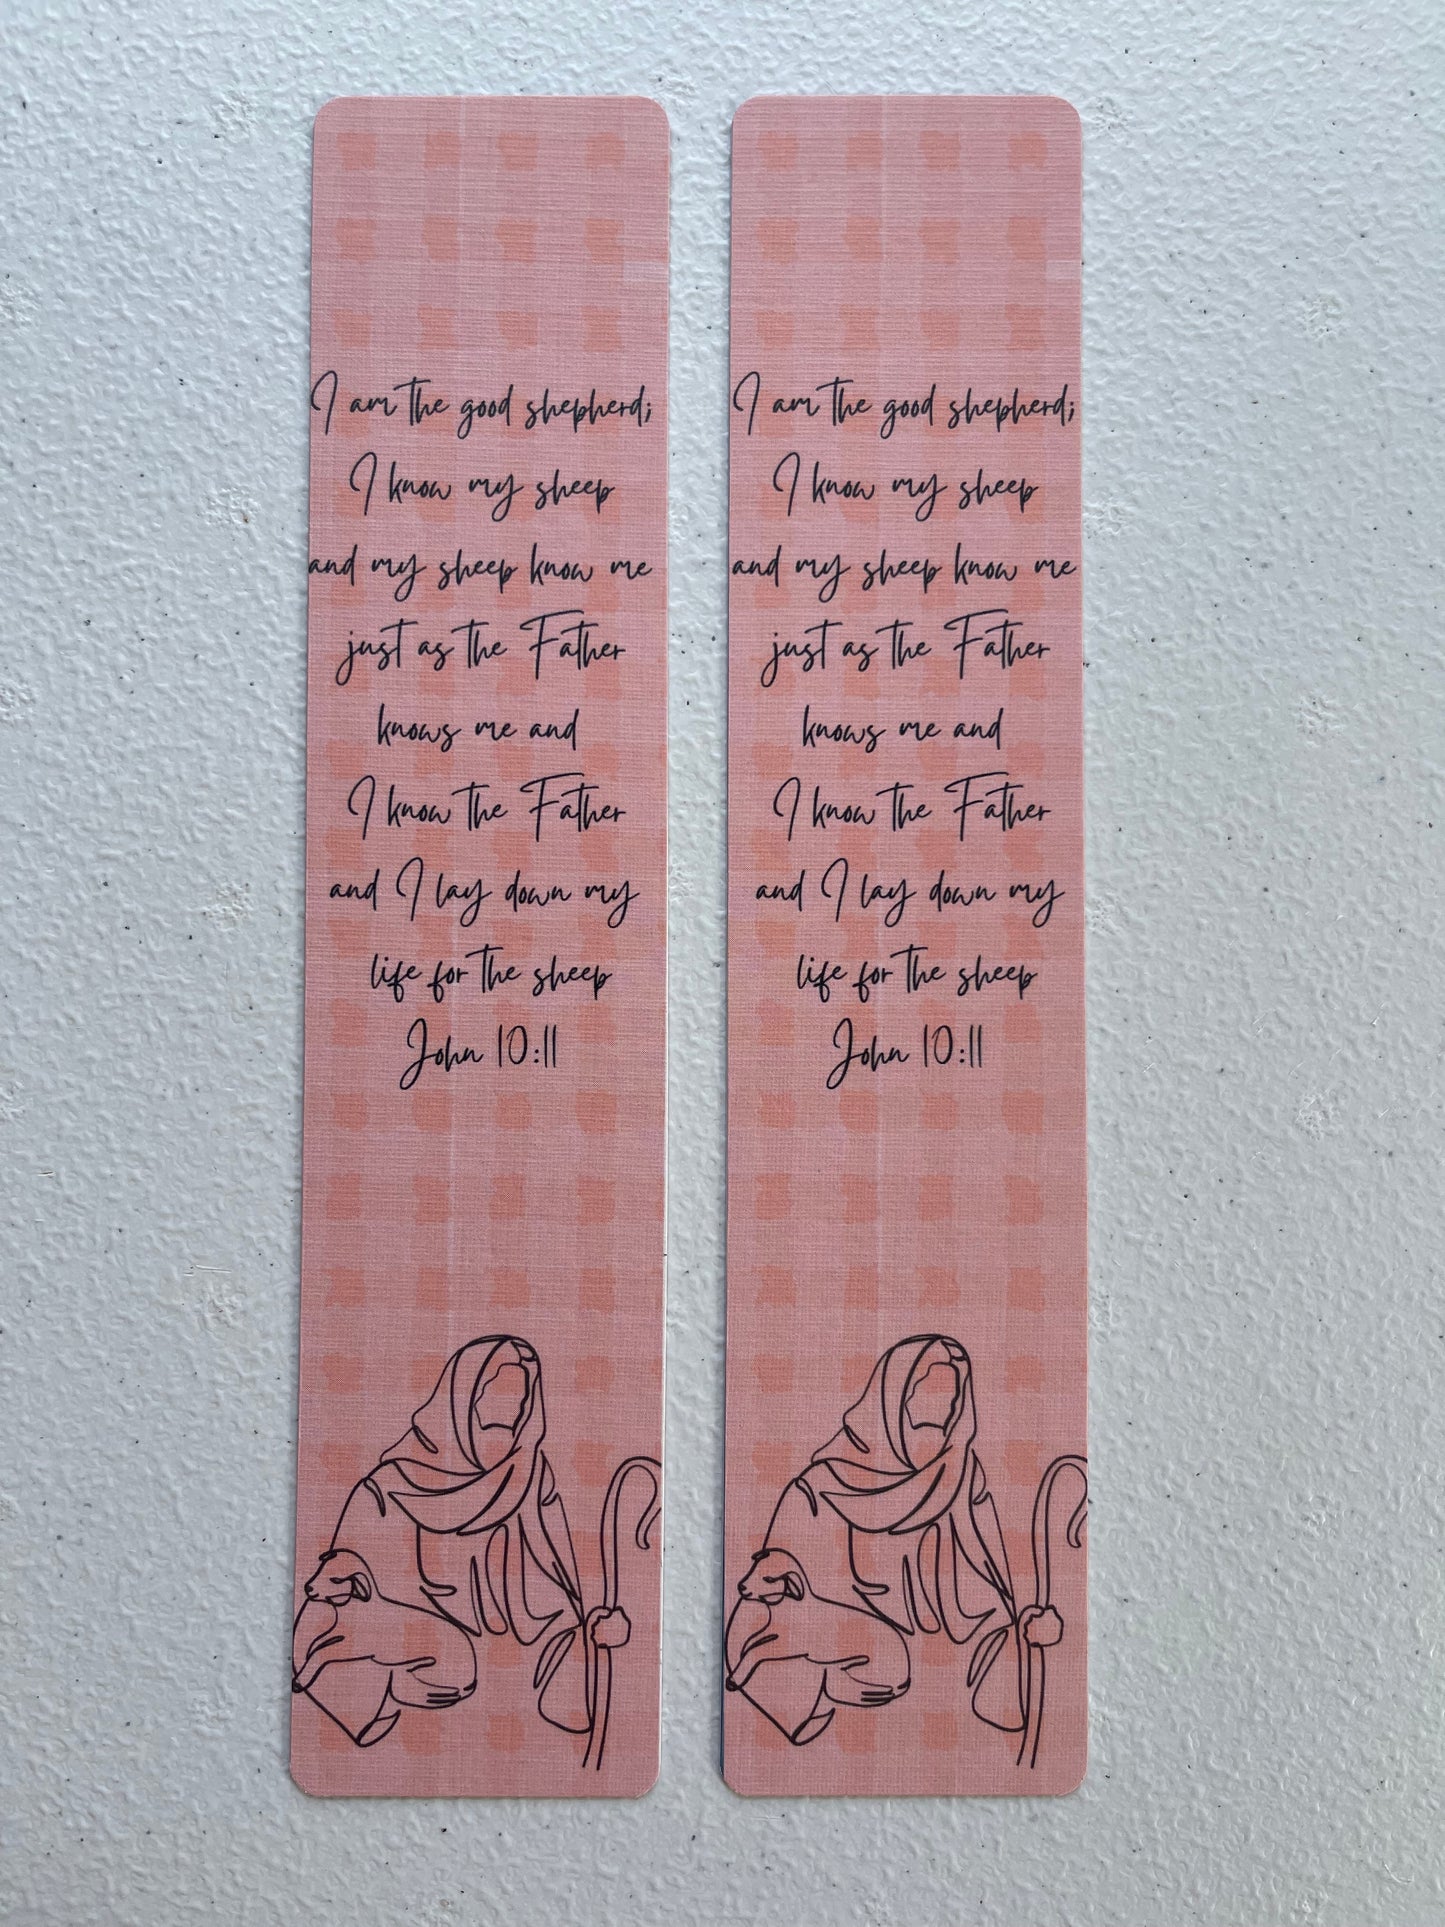 I am the good shepherd;
I know my sheep
and my sheep know me
just as the Father
knows me and
I know the Father
and I lay down my
life for the sheep
John 10:11
I am the good shepherd;
I know my sheep
and my sheep know me
just as the Father
knows me and
I know the Father
and I lay down my
life for the sheep
John 10:11